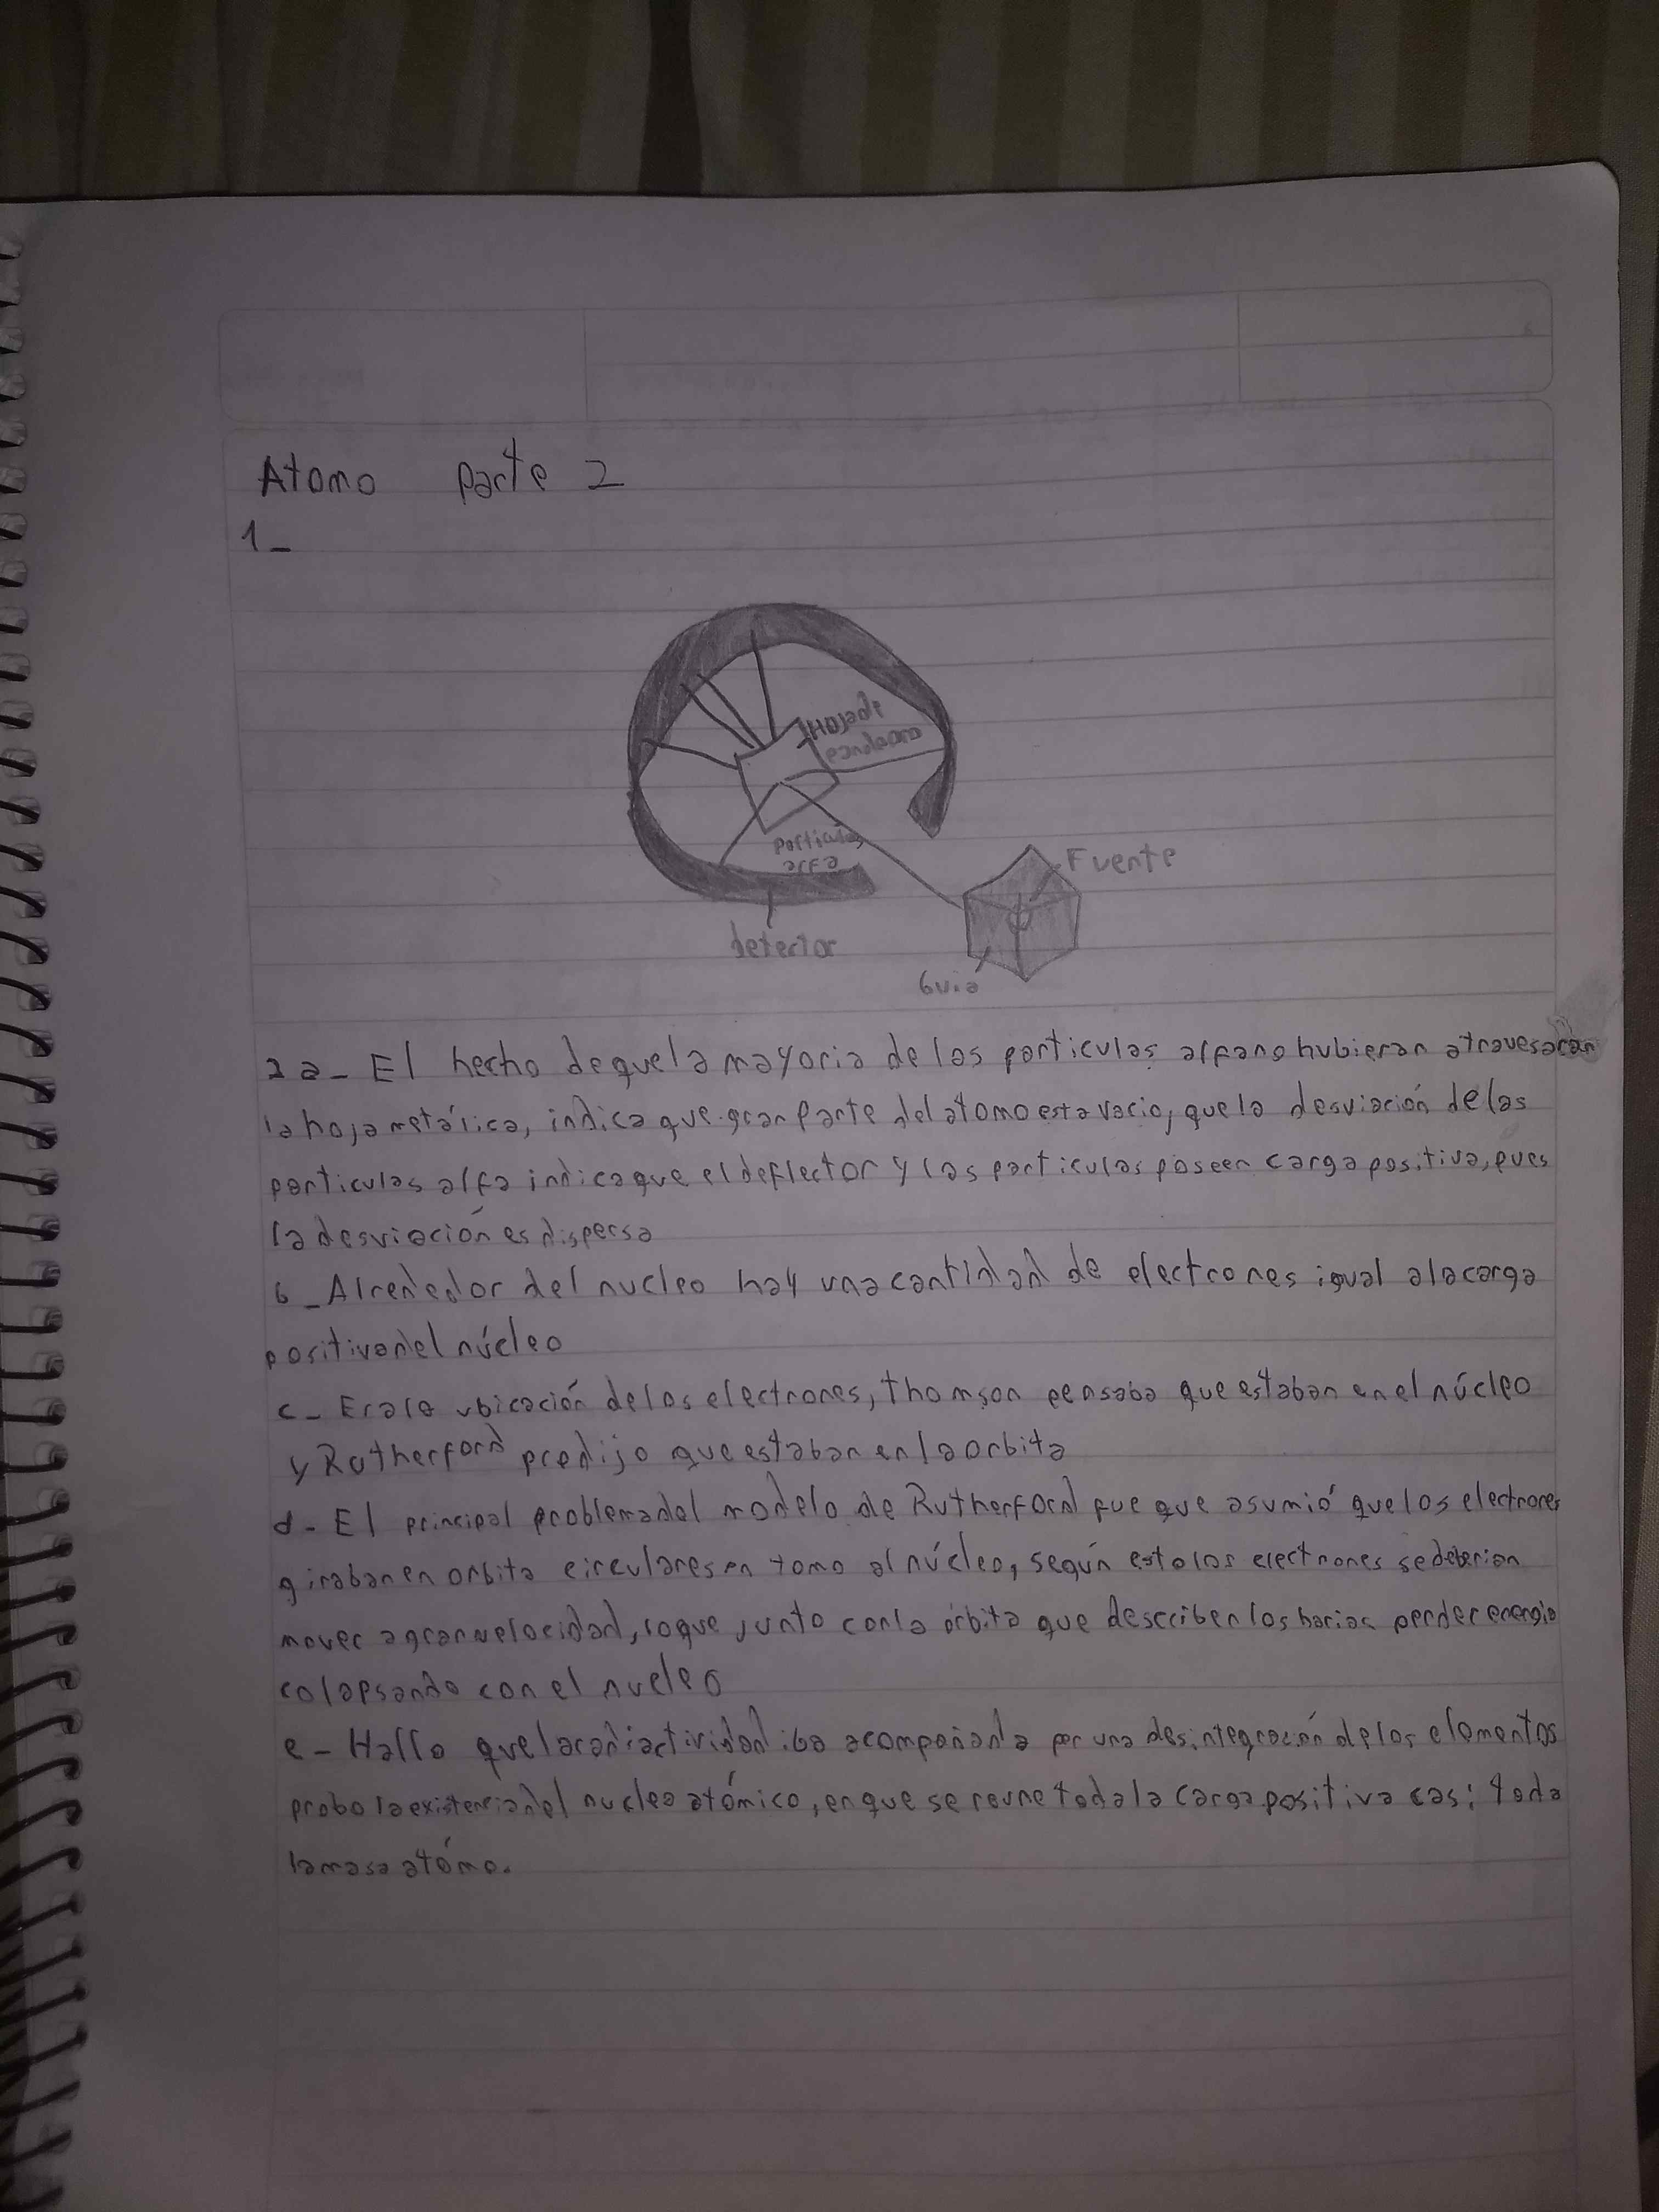 Atomo parte 2
1_
Hoja de
Particulas
alfa
Fuente
detector
Guia
2 a_ El hecho de que la mayoria de las particulas alfa no hubieran atravesaran
la hoja metálica, indica que gran parte del atomo esta vacio, que la desviación de las
particulas alfa indica que el deflector y las particulas poseen carga positiva, pues
la desviación es dispersa
b_ Alrededor del nucleo hay una cantidad de electrones igual a la carga
positiva del núcleo
c_ Era la ubicación de los electrones, Thomson pensaba que estaban en el núcleo
y Rutherford predijo que estaban en la orbita
d- El principal problema del modelo de Rutherford fue que asumió que los electrones
giraban en orbita circulares en torno al núcleo, según esto los electrones se deberian
mover a gran velocidad, lo que junto con la órbita que describen los harias perder energia
colapsando con el nucleo
e- Hallo que la radiactividad iba acompañada por una desintegración de los elementos
probo la existencia del nucleo atómico, en que se reune toda la carga positiva casi toda
la masa atómo.